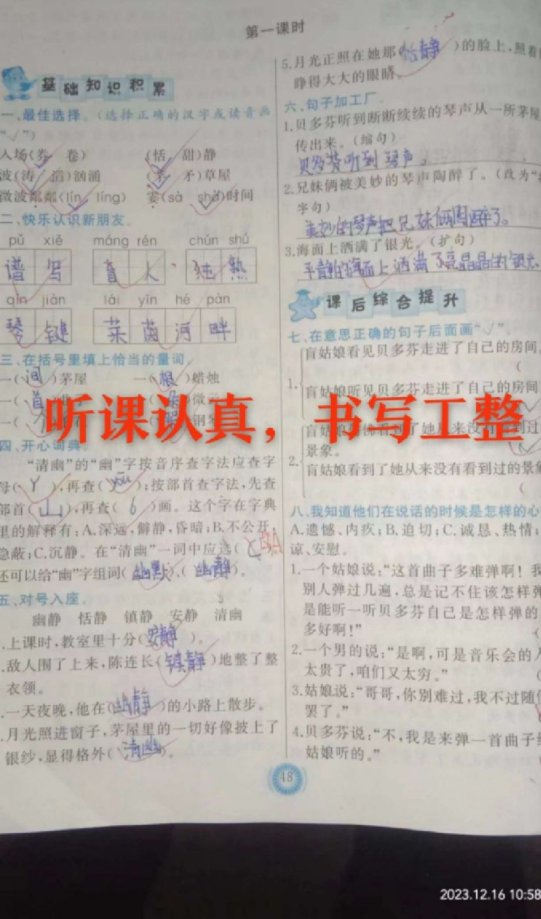 第一课时
基础知识积累
一、最佳选择。(选择正确的汉字或读音画
“√”)
入场(券 卷) (恬 甜)静
波(涛 滔)汹涌 (茅 矛)草屋
微波粼粼(lín líng) 霎(sà shà)时间
二、快乐认识新朋友。
pǔ xiě máng rén chún shú
谱写 盲人 纯熟
qín jiàn lái yīn hé pàn
琴键 莱茵河畔
三、在括号里填上恰当的量词。
一(间)茅屋 一(根)蜡烛
一(首)
四、开心词典。
“清幽”的“幽”字按音序查字法应查字
母(Y),再查(you);按部首查字法,先查
部首(山),再查(6)画。这个字在字典
里的解释有:A.深远,僻静,昏暗;B.不公开,
隐蔽;C.沉静。在“清幽”一词中应选(
还可以给“幽”字组词(幽默)、(幽静)
五、对号入座。
幽静 恬静 镇静 安静 清幽
.上课时,教室里十分(安静)。
.敌人围了上来,陈连长(镇静)地整了整
衣领。
.一天夜晚,他在(幽静)的小路上散步。
.月光照进窗子,茅屋里的一切好像披上了
银纱,显得格外(清幽)。
5.月光正照在她那(恬静)的脸上,照着
睁得大大的眼睛。
六、句子加工厂。
1.贝多芬听到断断续续的琴声从一所茅屋
传出来。(缩句)
贝多芬听到琴声。
2.兄妹俩被美妙的琴声陶醉了。(改为“
字句)
美妙的琴声把兄妹俩陶醉了。
3.海面上洒满了银光。(扩句)
平静的海面上洒满了亮晶晶的银光
课后综合提升
七、在意思正确的句子后面画“√”。
1.
盲姑娘看见贝多芬走进了自己的房间
盲姑娘听见贝多芬走进了自己的房间
2.
景象。
盲姑娘看到了她从来没有看到过的景象
八、我知道他们在说话的时候是怎样的心
A.遗憾、内疚;B.迫切;C.诚恳、热情;
谅、安慰。
1.一个姑娘说:“这首曲子多难弹啊!我
别人弹过几遍,总是记不住该怎样弹
是能听一听贝多芬自己是怎样弹的
多好啊!”
2.一个男的说:“是啊,可是音乐会的入
太贵了,咱们又太穷。”
3.姑娘说:“哥哥,你别难过,我不过随便
罢了。”
4.贝多芬说:“不,我是来弹一首曲子给
姑娘听的。”
听课认真，书写工整
48
2023.12.16 10:58